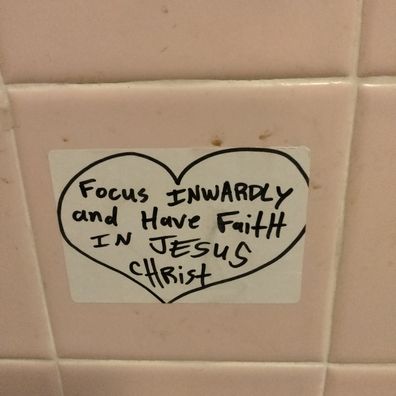 Focus INWARDLY
and Have FaitH
IN JESUS
CHRist